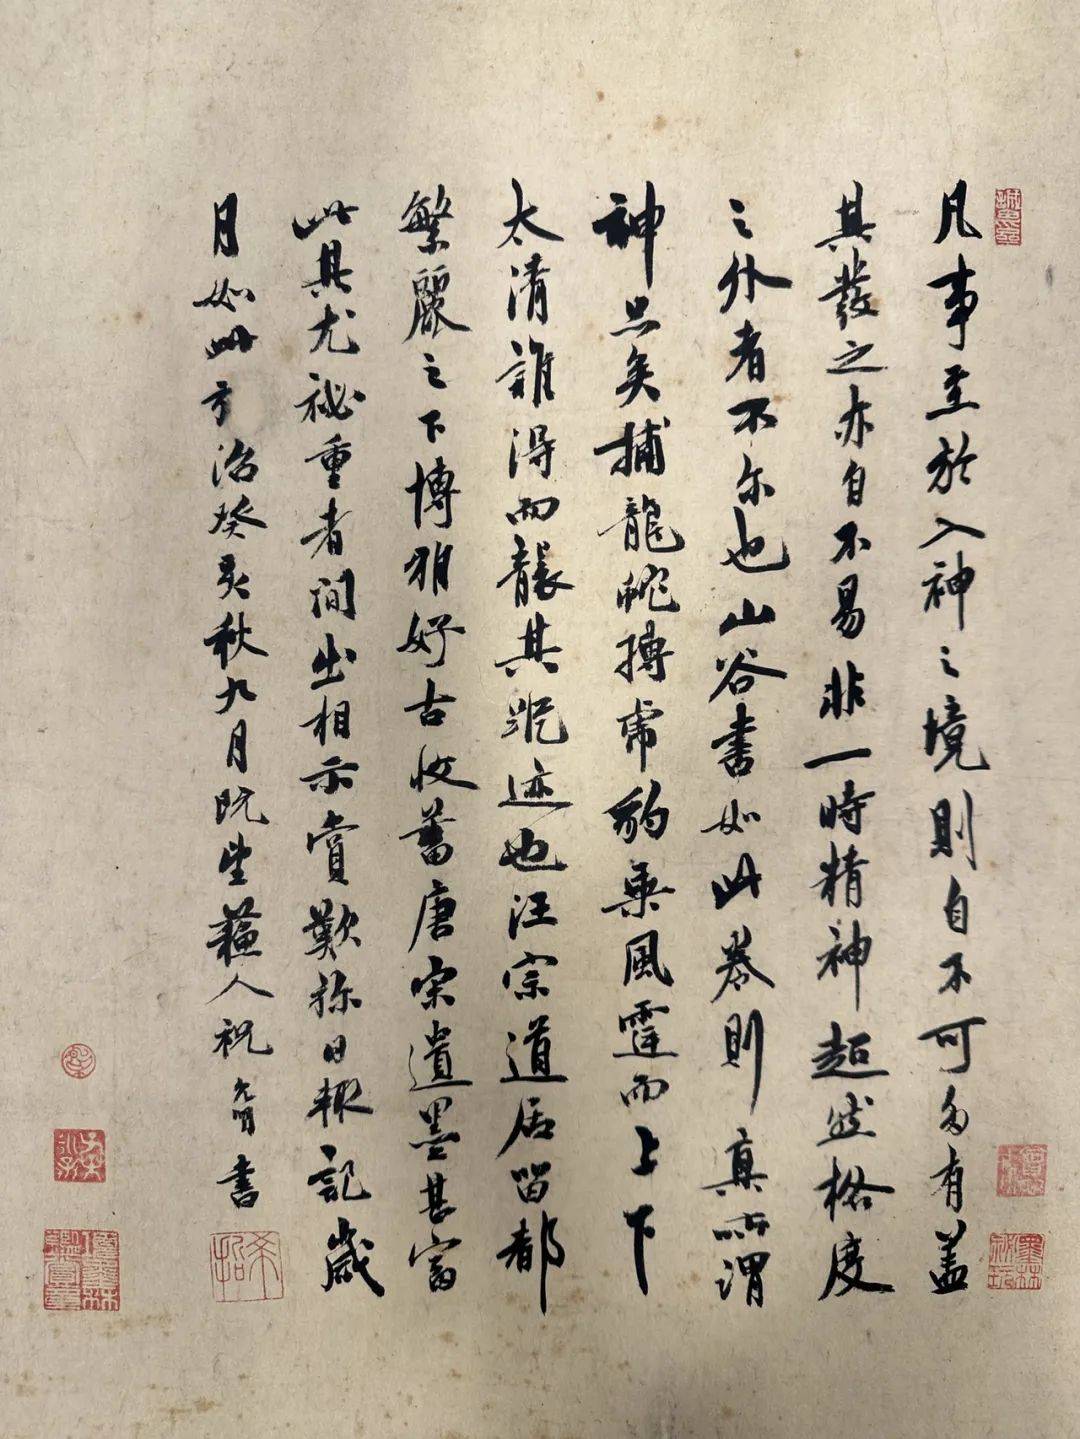 凡事至於入神之境則自不可多有蓋
其發之亦自不易非一時精神超然格度
之外者不尓也山谷書如此卷則真所謂
神品矣捕龍蛇搏虎豹乘風霆而上下
太清誰得而襲其蹤迹也汪宗道居留都
繁麗之下博雅好古收蓄唐宋遺墨甚富
此其尤祕重者間出相示賞歎弥日輒記歲
月如此弘治癸亥秋九月既望蘇人祝允明書